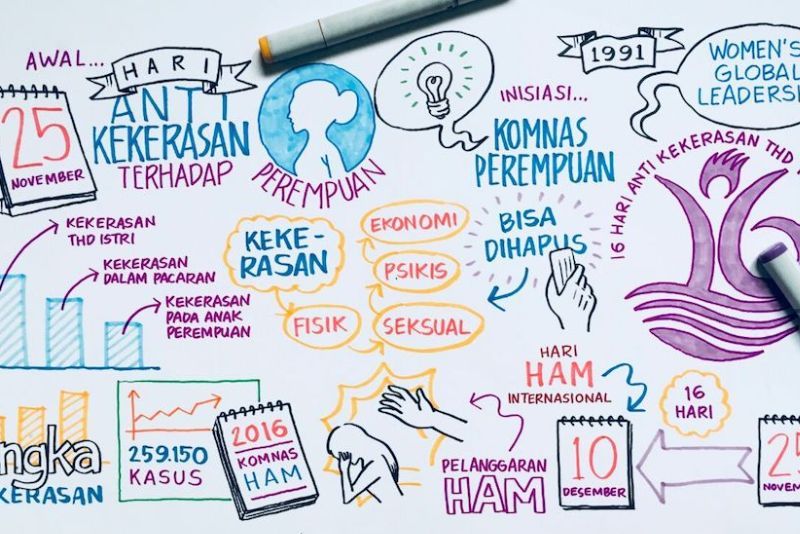 AWAL...
25
NOVEMBER
HARI
ANTI
KEKERASAN
TERHADAP
PEREMPUAN
INISIASI...
KOMNAS
PEREMPUAN
1991
WOMEN'S
GLOBAL
LEADERSHI
16 HARI ANTI KEKERASAN THD
KEKERASAN
THD ISTRI
KEKERASAN
DALAM PACARAN
KEKERASAN
PADA ANAK
PEREMPUAN
KEKE-
RASAN
FISIK
SEKSUAL
PSIKIS
EKONOMI
BISA
DIHAPUS
HARI
HAM
INTERNASIONAL
16
HARI
25
NOVEM
10
DESEMBER
PELANGGARAN
HAM
2016
KOMNAS
HAM
259.150
KASUS
ngka
KERASAN